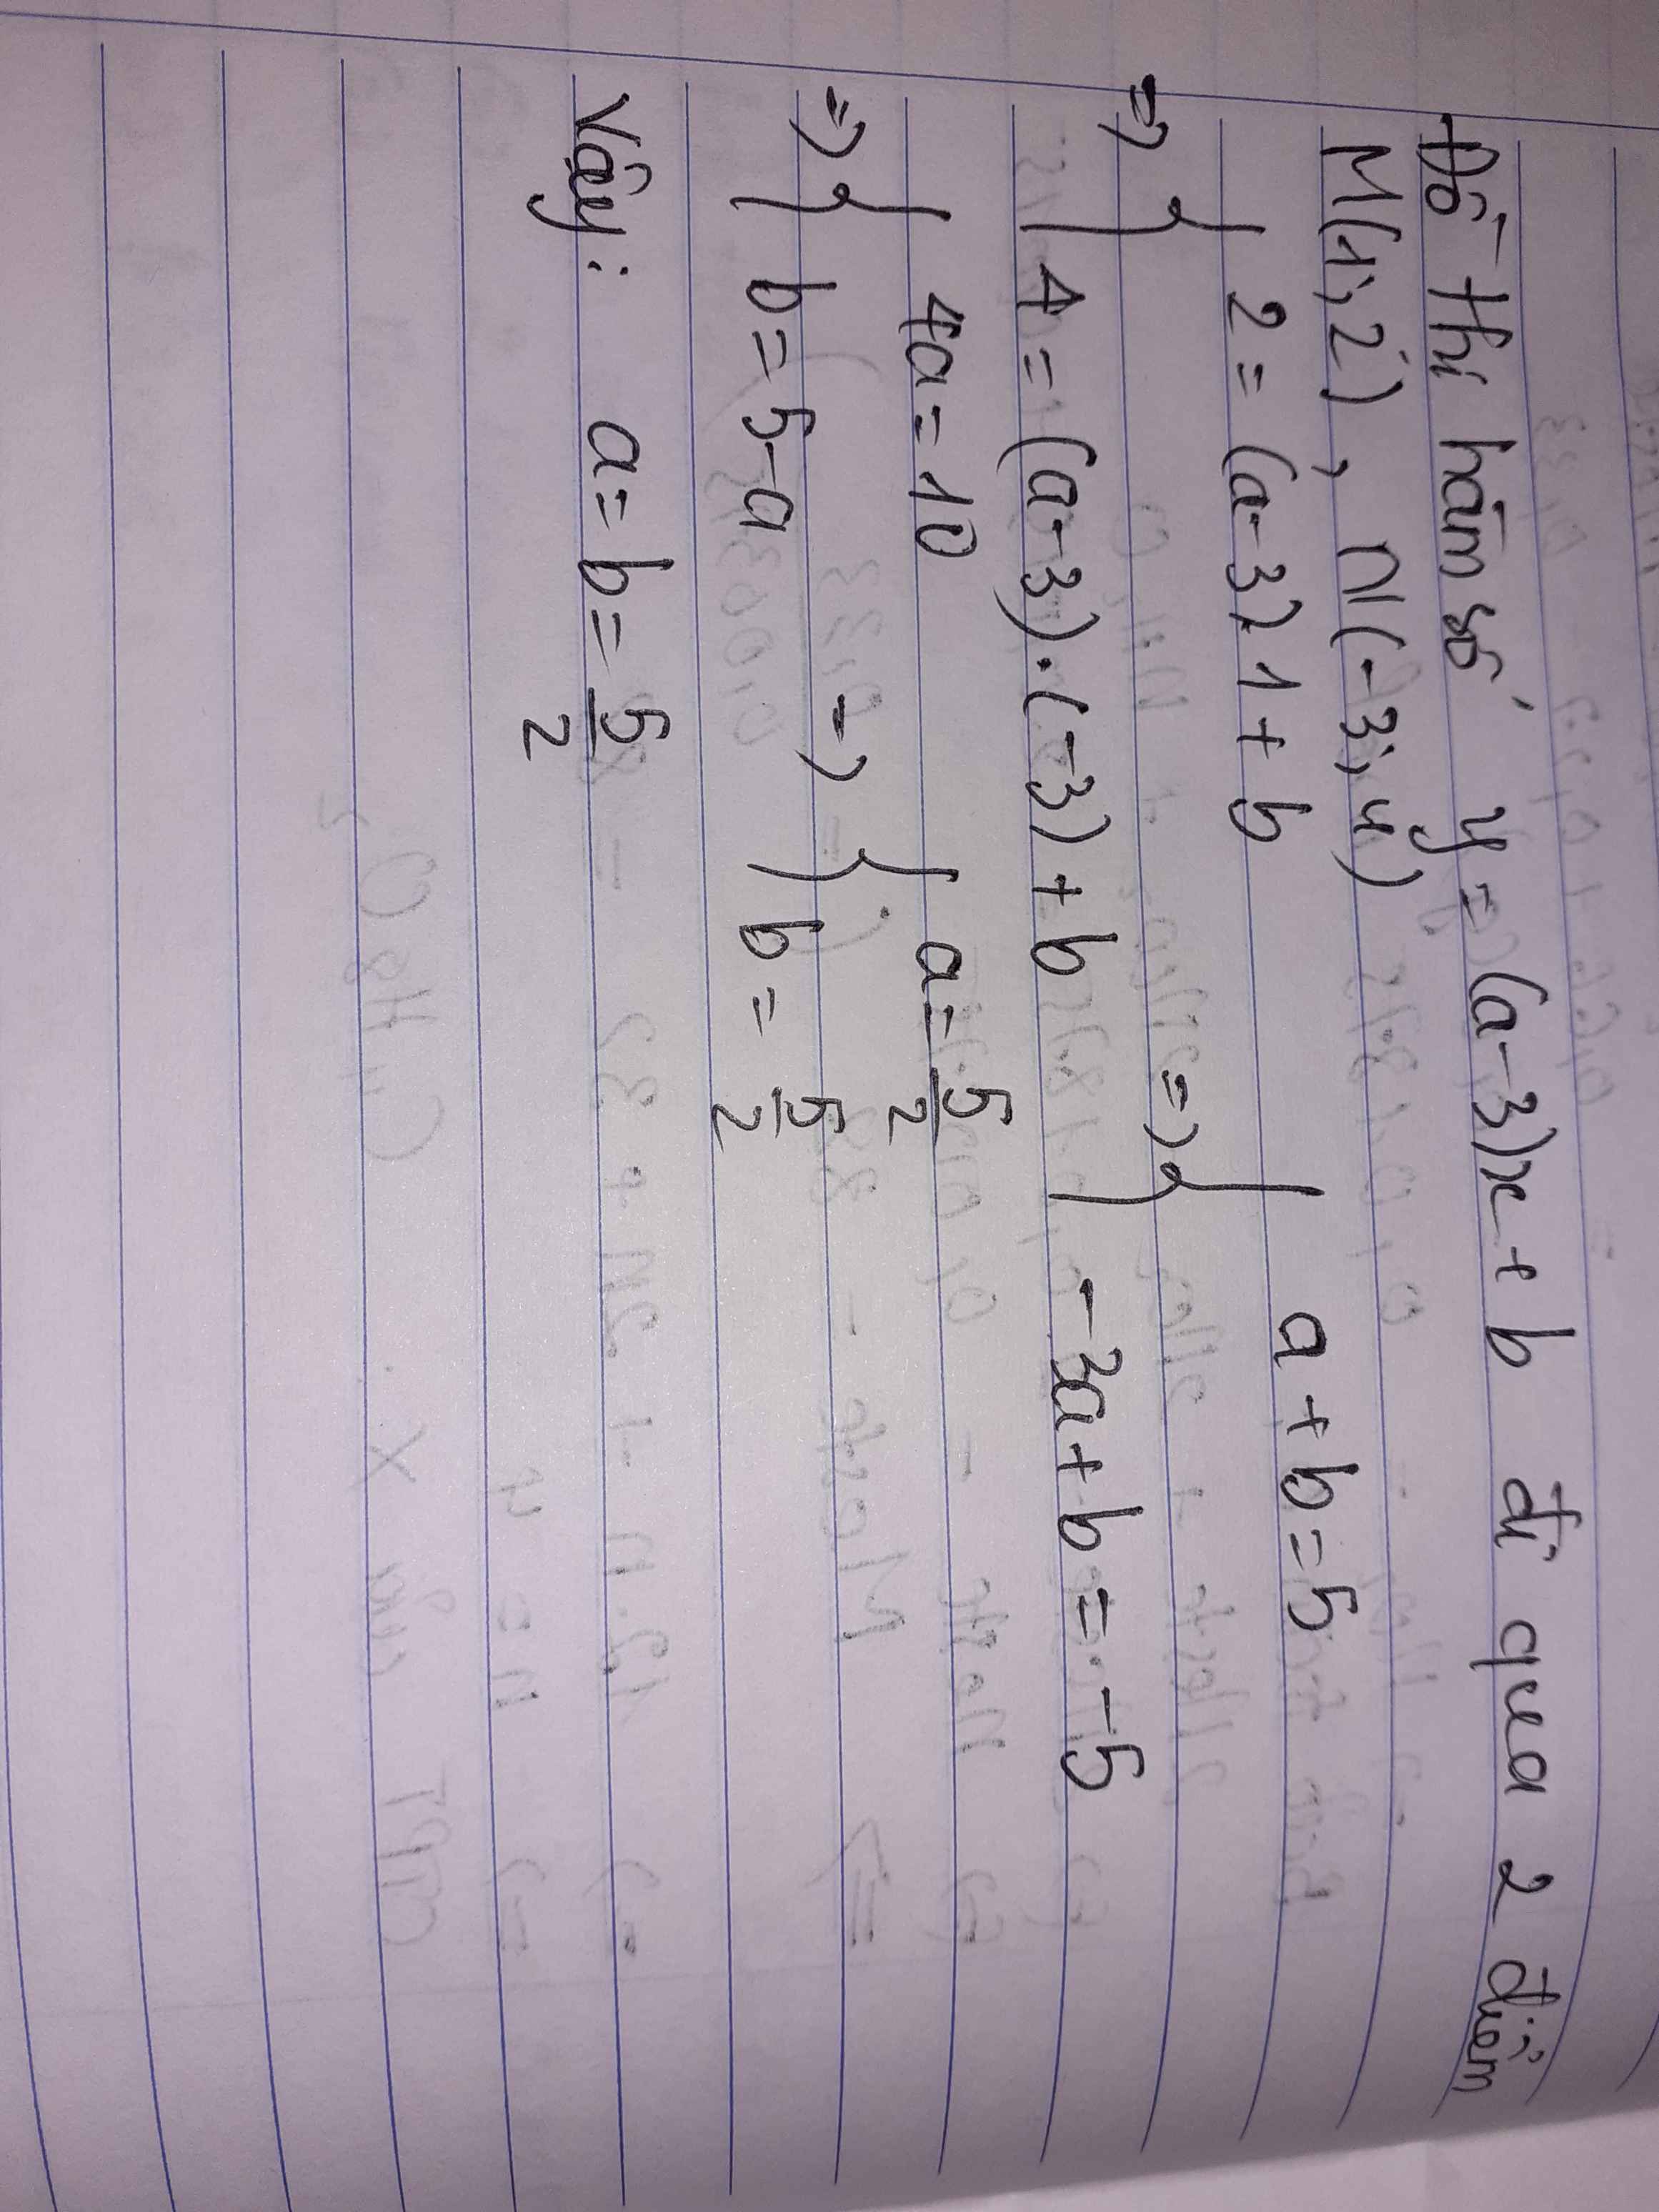 Đồ thị hàm số y = (a-3)x + b đi qua 2 điểm
M(1; 2), N(-3; 4)
=> { 2 = (a-3).1 + b
4 = (a-3).(-3) + b => { a + b = 5
-3a + b = -5
=> { 4a = 10
b = 5-a => { a = 5/2
b = 5/2
Vậy: a = b = 5/2